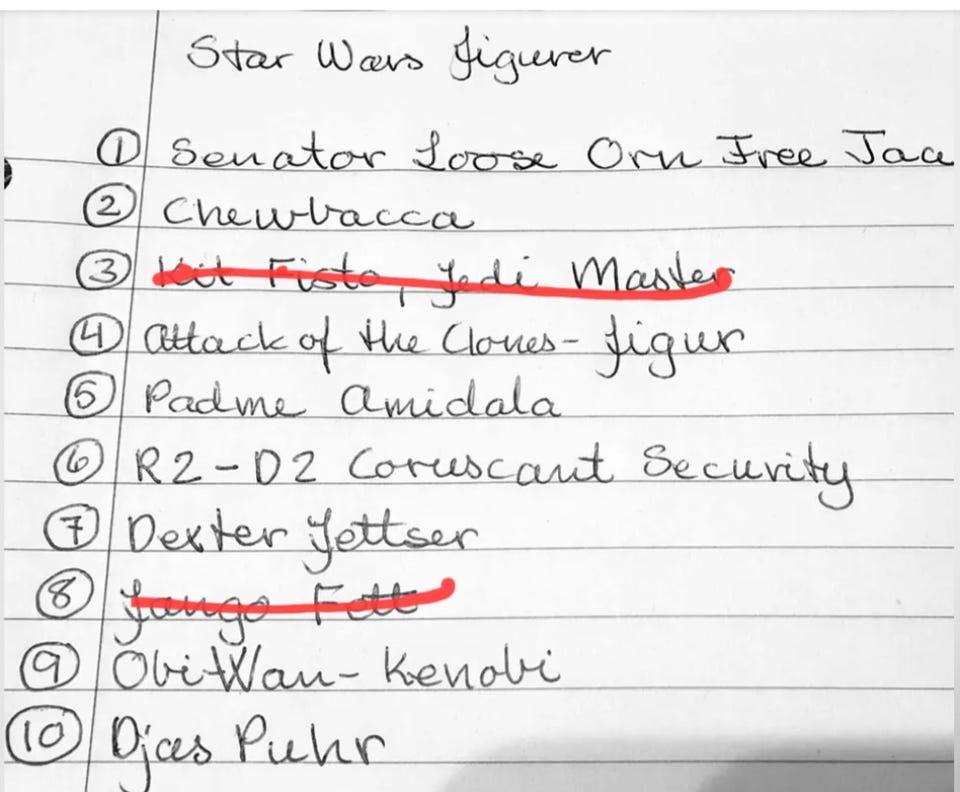 Star Wars figurer
① Senator Loose Orn Free Taa
② Chewbacca
③ Kit Fisto, Jedi Master
④ Attack of the Clones- figur
⑤ Padme Amidala
⑥ R2-D2 Coruscant Security
⑦ Dexter Jettser
⑧ Jango Fett
⑨ Obi-Wan-Kenobi
⑩ Djas Puhr